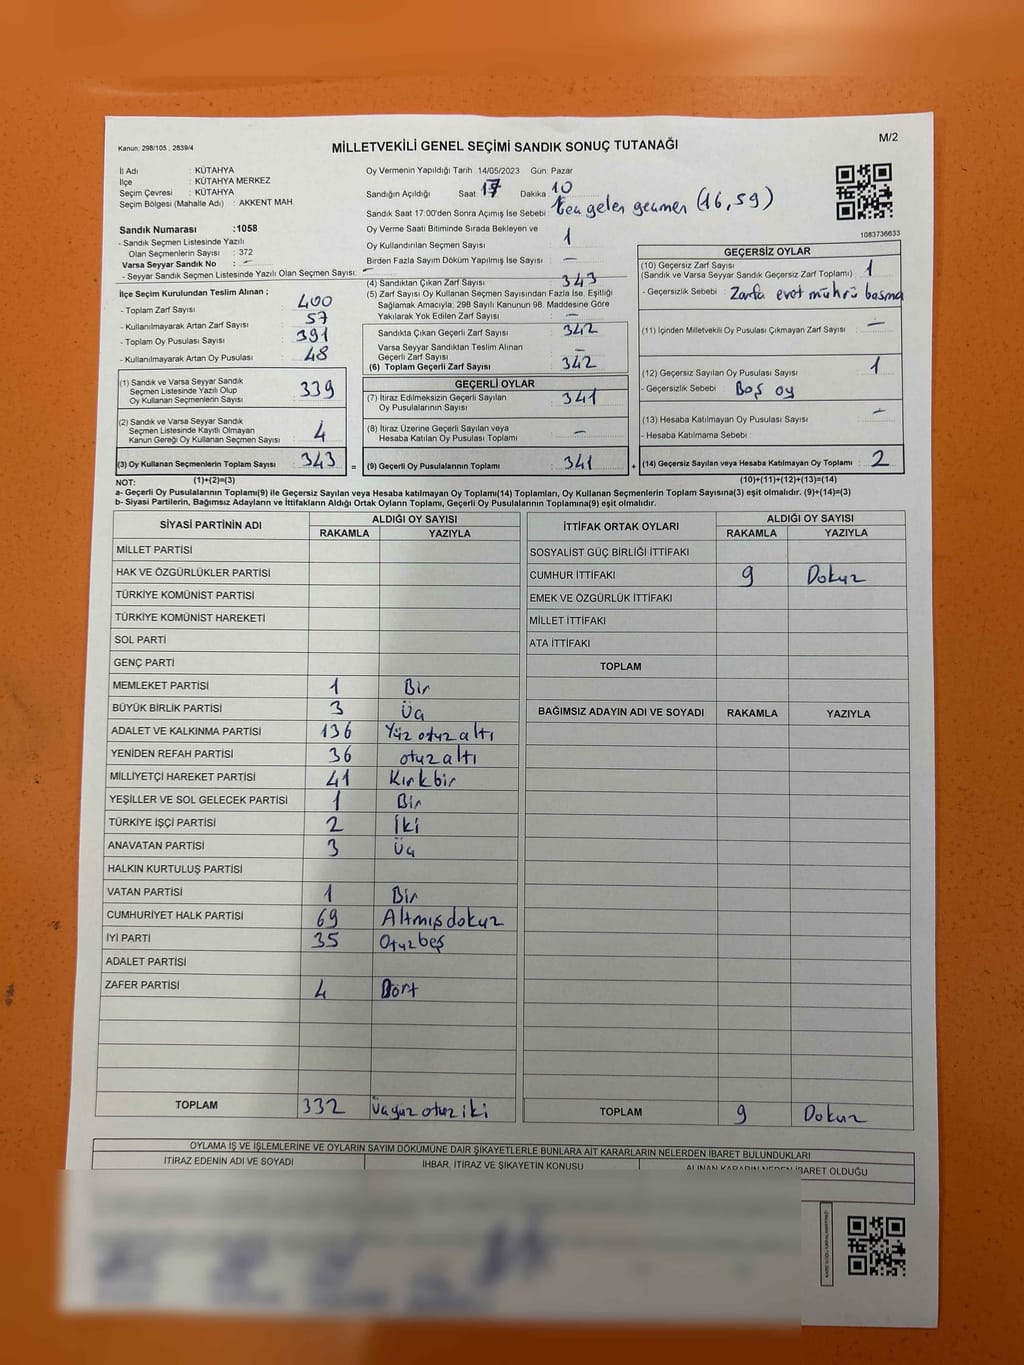 Kanun; 298/105 , 2839/4
MİLLETVEKİLİ GENEL SEÇİMİ SANDIK SONUÇ TUTANAĞI
M/2
İl Adı : KÜTAHYA
İlçe : KÜTAHYA MERKEZ
Seçim Çevresi : KÜTAHYA
Seçim Bölgesi (Mahalle Adı) : AKKENT MAH.
Oy Vermenin Yapıldığı Tarih :14/05/2023 Gün: Pazar
Sandığın Açıldığı Saat: 17 Dakika: 10
Sandık Saat 17:00'den Sonra Açımış İse Sebebi: (16,59)
Oy Verme Saati Bitiminde Sırada Bekleyen ve
Oy Kullandırılan Seçmen Sayısı : 1
Birden Fazla Sayım Döküm Yapılmış İse Sayısı : —
1083736633
Sandık Numarası :1058
- Sandık Seçmen Listesinde Yazılı
Olan Seçmenlerin Sayısı : 372
Varsa Seyyar Sandık No : —
- Seyyar Sandık Seçmen Listesinde Yazılı Olan Seçmen Sayısı: —
İlçe Seçim Kurulundan Teslim Alınan ;
- Toplam Zarf Sayısı : 400
- Kullanılmayarak Artan Zarf Sayısı : 57
- Toplam Oy Pusulası Sayısı : 391
- Kullanılmayarak Artan Oy Pusulası : 48
(1) Sandık ve Varsa Seyyar Sandık
Seçmen Listesinde Yazılı Olup
Oy Kullanan Seçmenlerin Sayısı : 339
(2) Sandık ve Varsa Seyyar Sandık
Seçmen Listesinde Kayıtlı Olmayan
Kanun Gereği Oy Kullanan Seçmen Sayısı : 4
(3) Oy Kullanan Seçmenlerin Toplam Sayısı : 343 =
(4) Sandıktan Çıkan Zarf Sayısı : 343
(5) Zarf Sayısı Oy Kullanan Seçmen Sayısından Fazla İse, Eşitliği
Sağlamak Amacıyla, 298 Sayılı Kanunun 98. Maddesine Göre
Yakılarak Yok Edilen Zarf Sayısı : —
Sandıkta Çıkan Geçerli Zarf Sayısı : 342
Varsa Seyyar Sandıktan Teslim Alınan
Geçerli Zarf Sayısı : —
(6) Toplam Geçerli Zarf Sayısı : 342
GEÇERLİ OYLAR
(7) İtiraz Edilmeksizin Geçerli Sayılan
Oy Pusulalarının Sayısı : 341
(8) İtiraz Üzerine Geçerli Sayılan veya
Hesaba Katılan Oy Pusulası Toplamı : —
(9) Geçerli Oy Pusulalarının Toplamı : 341 +
GEÇERSİZ OYLAR
(10) Geçersiz Zarf Sayısı
(Sandık ve Varsa Seyyar Sandık Geçersiz Zarf Toplamı) : 1
- Geçersizlik Sebebi : Zarfa evet mührü basma
(11) İçinden Milletvekili Oy Pusulası Çıkmayan Zarf Sayısı : —
(12) Geçersiz Sayılan Oy Pusulası Sayısı : 1
- Geçersizlik Sebebi : Boş oy
(13) Hesaba Katılmayan Oy Pusulası Sayısı : —
- Hesaba Katılmama Sebebi :
(14) Geçersiz Sayılan veya Hesaba Katılmayan Oy Toplamı : 2
NOT: (1)+(2)=(3) (10)+(11)+(12)+(13)=(14)
a- Geçerli Oy Pusulalarının Toplamı(9) ile Geçersiz Sayılan veya Hesaba katılmayan Oy Toplamı(14) Toplamları, Oy Kullanan Seçmenlerin Toplam Sayısına(3) eşit olmalıdır. (9)+(14)=(3)
b- Siyasi Partilerin, Bağımsız Adayların ve İttifakların Aldığı Ortak Oyların Toplamı, Geçerli Oy Pusulalarının Toplamına(9) eşit olmalıdır.
SİYASİ PARTİNİN ADI ALDIĞI OY SAYISI
RAKAMLA YAZIYLA
MİLLET PARTİSİ
HAK VE ÖZGÜRLÜKLER PARTİSİ
TÜRKİYE KOMÜNİST PARTİSİ
TÜRKİYE KOMÜNİST HAREKETİ
SOL PARTİ
GENÇ PARTİ
MEMLEKET PARTİSİ 1 Bir
BÜYÜK BİRLİK PARTİSİ 3 Üç
ADALET VE KALKINMA PARTİSİ 136 Yüz otuz altı
YENİDEN REFAH PARTİSİ 36 otuz altı
MİLLİYETÇİ HAREKET PARTİSİ 41 Kırkbir
YEŞİLLER VE SOL GELECEK PARTİSİ 1 Bir
TÜRKİYE İŞÇİ PARTİSİ 2 İki
ANAVATAN PARTİSİ 3 Üç
HALKIN KURTULUŞ PARTİSİ
VATAN PARTİSİ 1 Bir
CUMHURİYET HALK PARTİSİ 69 Altmışdokuz
İYİ PARTİ 35 Otuzbeş
ADALET PARTİSİ
ZAFER PARTİSİ 4 Dört
TOPLAM 332 Üçyüz otuz iki
İTTİFAK ORTAK OYLARI ALDIĞI OY SAYISI
RAKAMLA YAZIYLA
SOSYALİST GÜÇ BİRLİĞİ İTTİFAKI
CUMHUR İTTİFAKI 9 Dokuz
EMEK VE ÖZGÜRLÜK İTTİFAKI
MİLLET İTTİFAKI
ATA İTTİFAKI
TOPLAM
BAĞIMSIZ ADAYIN ADI VE SOYADI RAKAMLA YAZIYLA
TOPLAM 9 Dokuz
OYLAMA İŞ VE İŞLEMLERİNE VE OYLARIN SAYIM DÖKÜMÜNE DAİR ŞİKAYETLERLE BUNLARA AİT KARARLARIN NELERDEN İBARET BULUNDUKLARI
İTİRAZ EDENİN ADI VE SOYADI İHBAR, İTİRAZ VE ŞİKAYETİN KONUSU ALINAN KARARIN NEDEN İBARET OLDUĞU